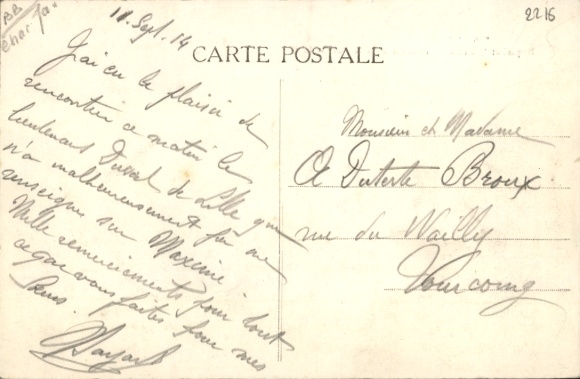 BB
2216
11. Sept. 14
CARTE POSTALE
J'ai eu le plaisir de
rencontrer ce matin le
lieutenant de Lille qui
n'a malheureusement pu me
renseigner sur Maxime.
Mille remerciements pour tout
ce que vous faites pour mes
Monsieur et Madame
Broux
rue du Wailly
Tourcoing